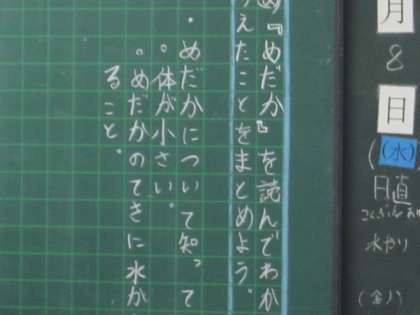 め『めだか』を読んでわか
えたことをまとめよう。
・めだかについて知って
。体が小さい。
。めだかのてきに水か
ること。
月
8
日
(水)
日直
水やり
(金)